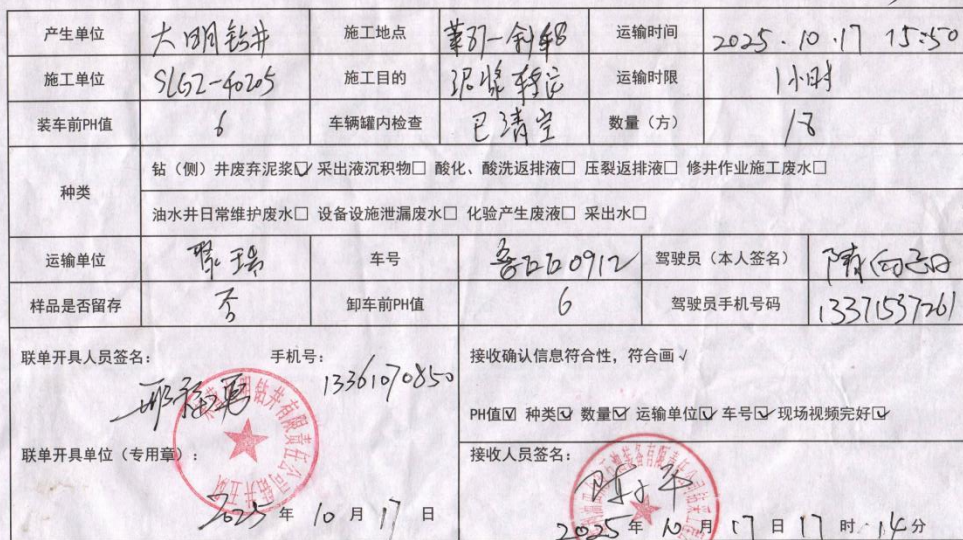 产生单位 大明钻井 施工地点 运输时间 2025.10.17 15:50
施工单位 SLGZ-40205 施工目的 泥浆 运输时限 1小时
装车前PH值 6 车辆罐内检查 已清空 数量（方） 18
种类 钻（侧）井废弃泥浆☑ 采出液沉积物□ 酸化、酸洗返排液□ 压裂返排液□ 修井作业施工废水□
油水井日常维护废水□ 设备设施泄漏废水□ 化验产生废液□ 采出水□
运输单位 聚瑞 车号 0912 驾驶员（本人签名）
样品是否留存 否 卸车前PH值 6 驾驶员手机号码 13371537261
联单开具人员签名： 手机号： 13361070850
接收确认信息符合性，符合画√
PH值☑ 种类☑ 数量☑ 运输单位☑ 车号☑ 现场视频完好☑
联单开具单位（专用章）：
2025 年 10 月 17 日
接收人员签名：
2025 年 10 月 17 日 17 时 14 分